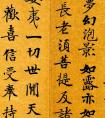 夢幻泡影如露亦如
長老須菩提及諸
婆夷一切世間天
歡喜信受奉持